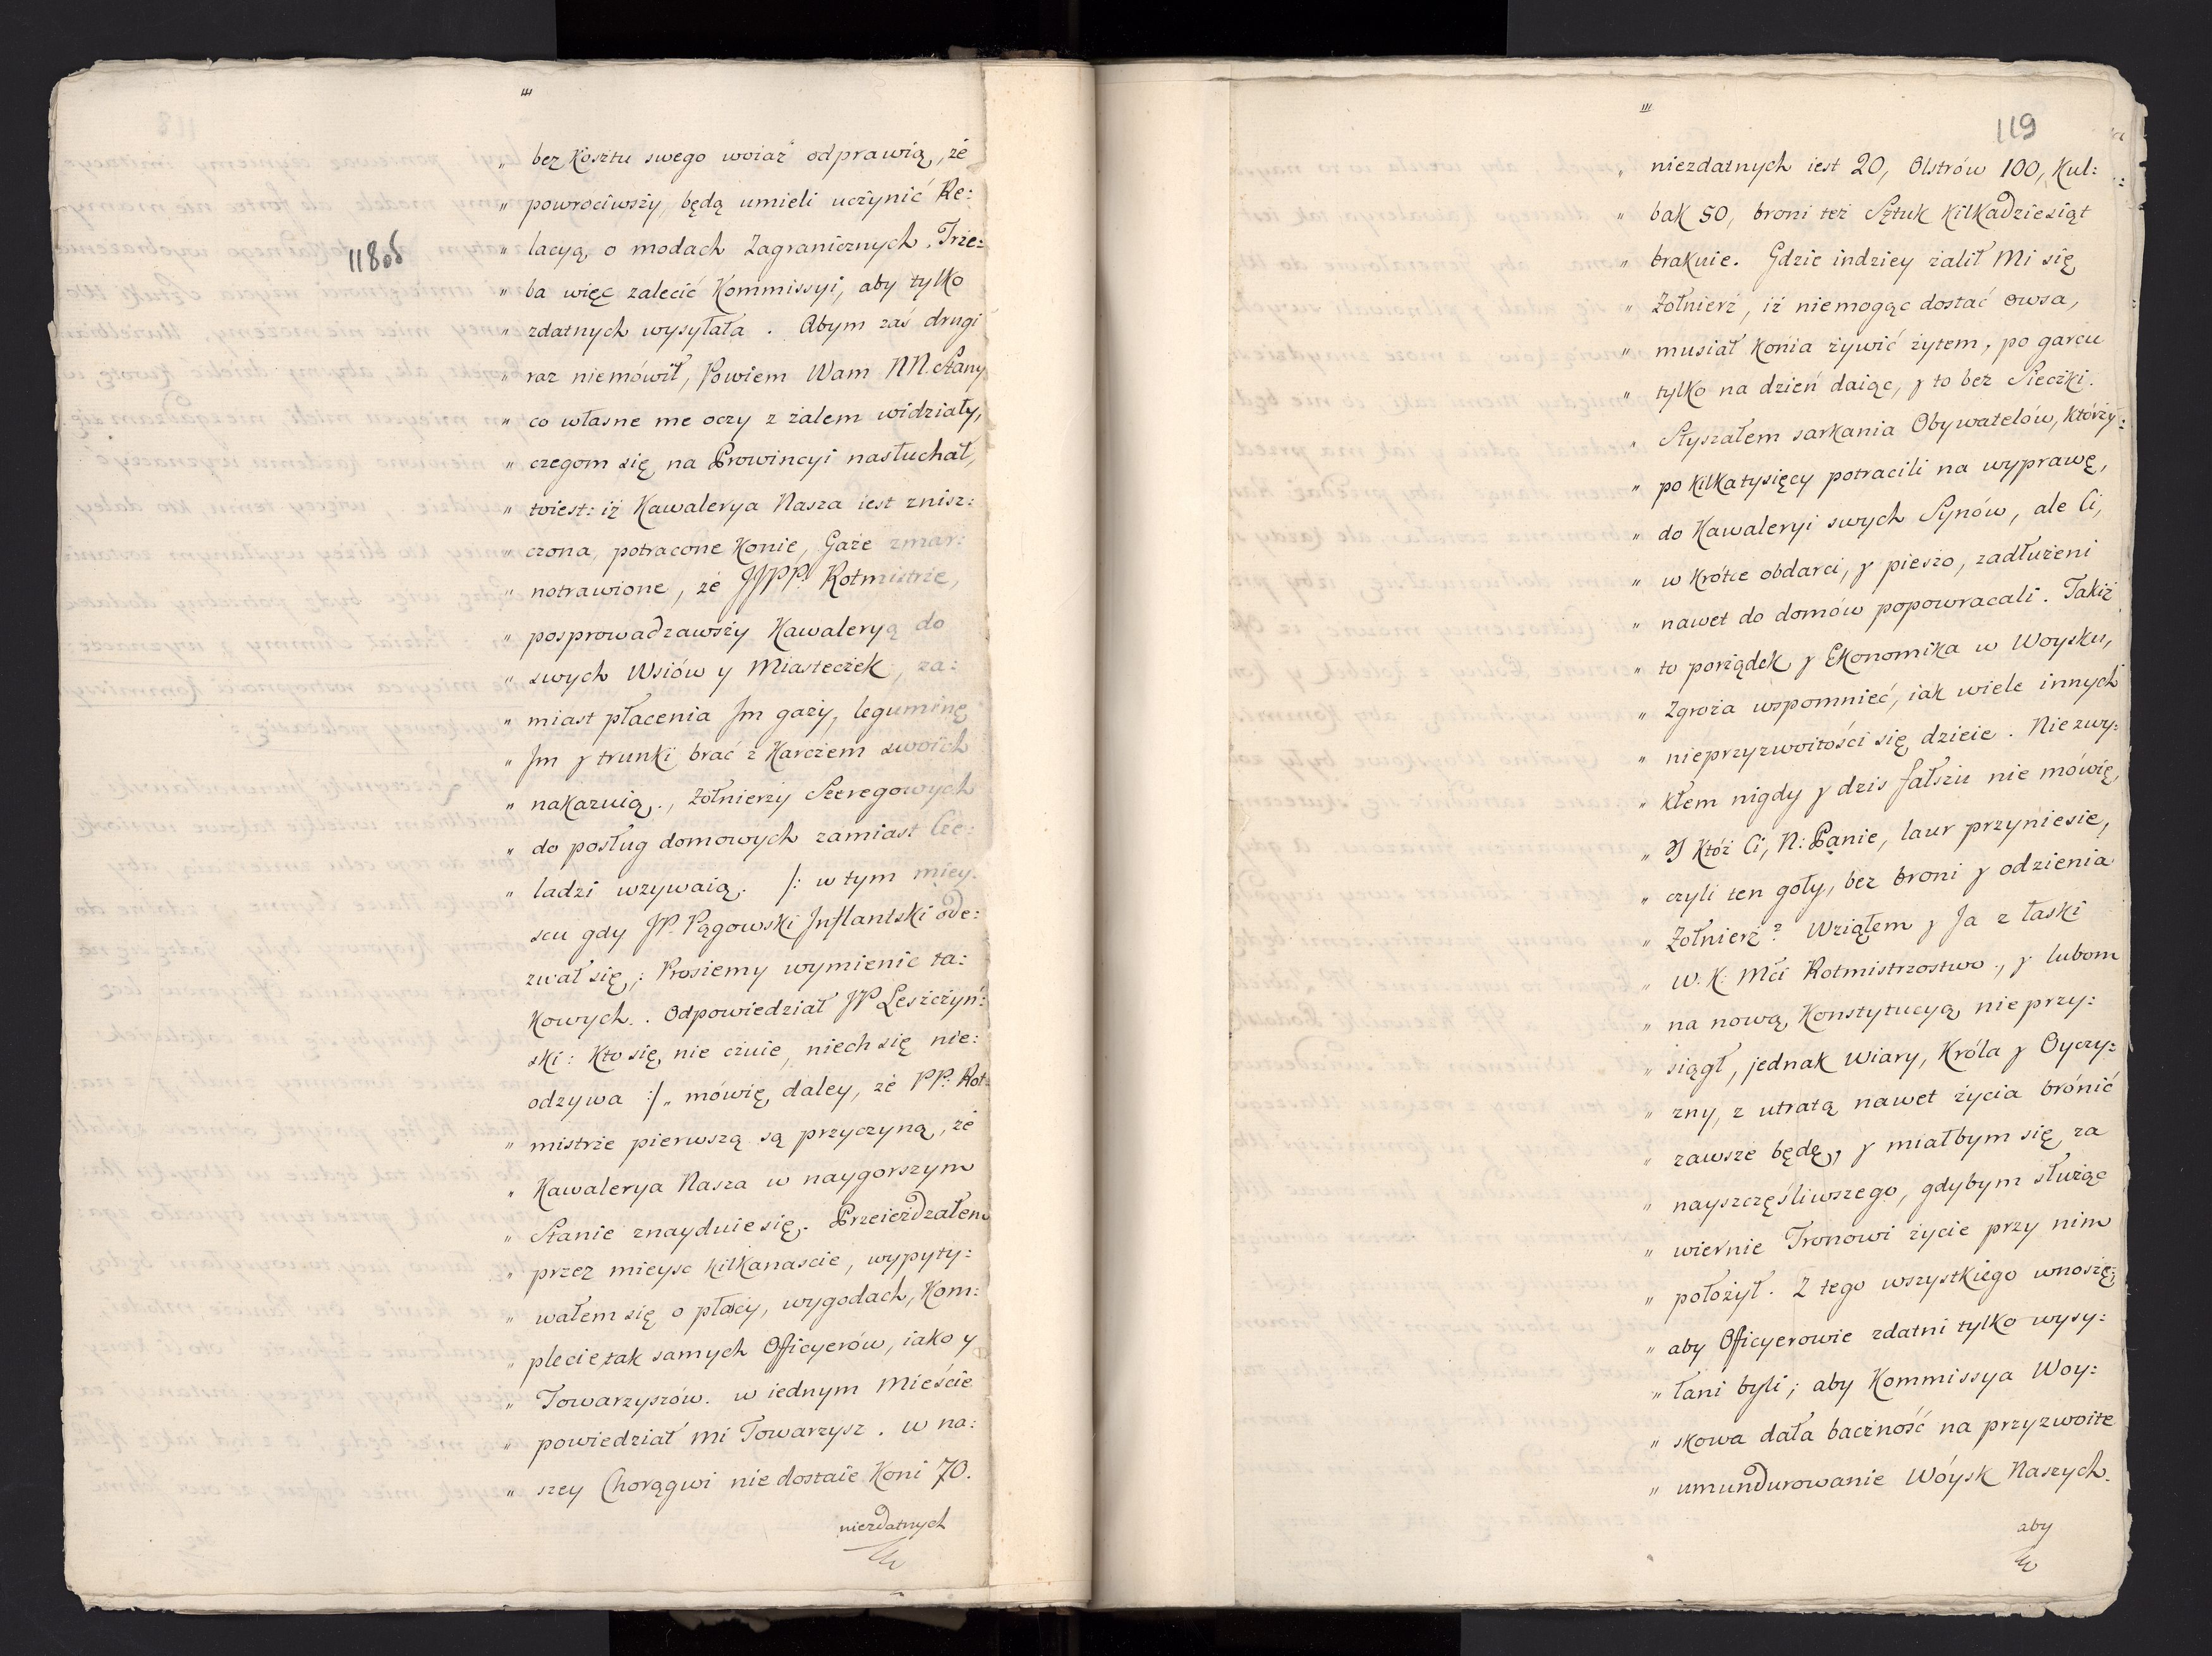 118
„ bez Kosztu swego woiaż odprawią, że
„ powrociwszy będą umieli uczynić Re:
„ lacyą, o modach Zagranicznych. Trze:
„ ba więc zalecić Kommissyi, aby tylko
„ zdatnych wysyłała. Abym zaś drugi
„ raz niemówił, Powiem Wam NN. Stany
„ co własne me oczy z żalem widziały,
„ czegom się na Prowincyi nasłuchał,
„ toiest: iż Kawalerya Nasza iest znisz:
„ czona, potracone Konie, Gaże zmar:
„ notrawione, że JJPP. Rotmistrze,
„ posprowadzawszy Kawaleryą do
„ swych Wsiów y Miasteczek, za:
„ miast płacenia Jm gaży, leguminę
„ Jm y trunki brać z Karczem swoich
„ nakazuią., żołnierzy Szeregowych
„ do posług domowych zamiast Cze:
„ ladzi wzywaią. /: w tym miey.
scu gdy JP. Pągowski Inflantski ode:
zwał się,: Prosiemy wymienić ta:
Kowych.. Odpowiedział JP Leszczyń:
ski: Kto się, nie czuie, niech się nie:
odzywa :/ „ mówię, daley, że PP. Rot:
„ mistrze pierwszą są przyczyną, że
„ Kawalerya Nasza w naygorszym
„ Stanie znayduie się. Przeieżdzałem
„ przez mieysc kilkanascie, wypyty:
„ wałem się o płacy, wygodach, Kom:
„ plecie, tak samych Officyerów, iako y
„ Towarzyszów. w iednym Mieście
„ powiedział mi Towarzysz. w na:
„ szey Chorągwi nie dostaie Koni 70.
niezdatnych
119
„ niezdatnych iest 20, Olstrów 100, Kul:
„ bak 50, broni też Sztuk Kilkadziesiąt
„ brakuie. Gdzie indziey żalił Mi się
„ Żołnierz, iż niemogąc dostać owsa,
„ musiał Konia żywić żytem, po garcu
„ tylko na dzień daiąc, y to bez Sieczki.
„ Słyszałem sarkania Obywatelów, Którzy:
„ po kilkatysięcy potracili na wyprawę,
„ do Kawaleryi swych Synów, ale Ci,
„ w Krótce obdarci, y pieszo, zadłużeni
„ nawet do domów popowracali. Takiż
„ to porządek y Ekonomika w Woysku,
„ Zgroza wspomnieć, iak wiele innych
„ nieprzyzwoitości się dzieie. Nie zwy:
„ kłem nigdy y dziś fałszu nie mówię,
„ Y Któż Ci, N: Panie, laur przyniesie,
„ czyli ten goły, bez broni y odzienia
„ Żołnierz? Wziąłem y Ja z łaski
„ W. K. Mći Rotmistrzostwo., y lubom
„ na nową Konstytucyą nie przy:
„ siągł, jednak wiary, Króla y Oyczy:
„ zny, z utratą nawet życia bronić
„ zawsze będę, y miałbym się za
„ nayszczęśliwszego, gdybym służąc
„ wiernie Tronowi życie przy nim
„ położył. Z tego wszystkiego wnoszę,
„ aby Officyerowie zdatni tylko wysy:
„ łani byli; aby Kommissya Woy:
„ skowa dała baczność na przyzwoite
„ umundurowanie Wóysk Naszych.
aby